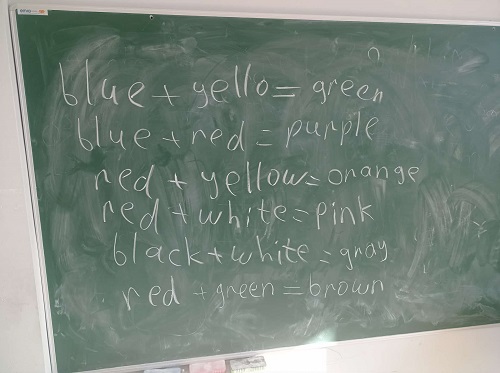 blue + yello = green
blue + red = purple
red + yellow = orange
red + white = pink
black + white = gray
red + green = brown